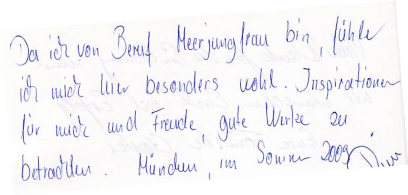 Da ich von Beruf Meerjungfrau bin, fühle
ich mich hier besonders wohl. Inspirationen
für mich und Freude, gute Werke zu
betrachten. München, im Sommer 2009